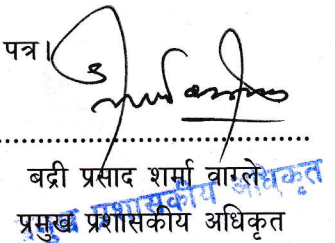 पत्र।
बद्री प्रसाद शर्मा वाग्ले
प्रमुख प्रशासकीय अधिकृत
प्रमुख प्रशासकीय अधिकृत